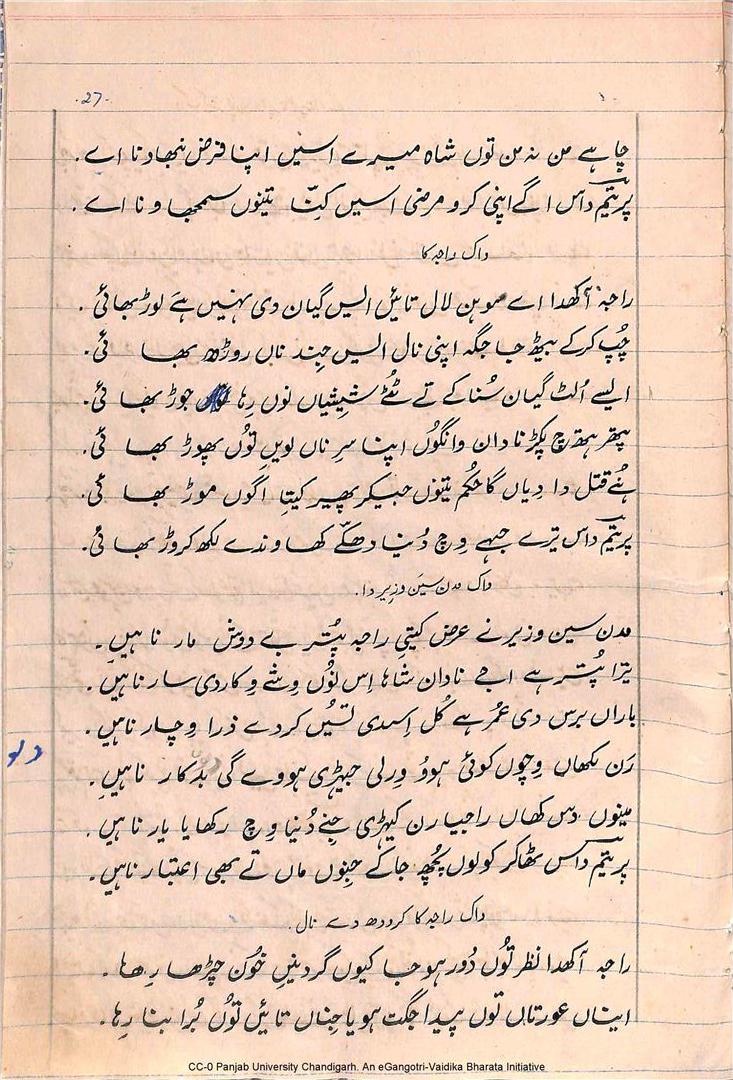 -27-
چاہے من نہ من توں شاہ میرے اسیں اپنا فرض نبھادنا اے۔
پریتم داس اگے اپنی کرو مرضی اسیں کنّا تینوں سمجھاونا اے۔
واک راجہ کا
راجہ آکھدا اے موہن لال تائیں ایس گیان دی نہیں ہے لوڑ بھائی۔
چُپ کرکے بیٹھ جا جگہ اپنی نال ایس جِند ناں روڑھ بھائی۔
ایسے اُلٹ گیان سُنا کے تے ٹُٹے شیشیاں نوں رہا جوڑ بھائی۔
پتھر ہتھ چ پکڑ نادان وانگوں اپنا سر ناں لویں توں پھوڑ بھائی۔
ہُنے قتل دا دیاں گا حُکم تینوں جیکر پھیر کیتا اگوں موڑ بھائی۔
پریتم داس تیرے جیہے وچ دُنیا دھکّے کھاوندے لکھ کروڑ بھائی۔
واک مدن سین وزیر دا۔
مدن سین وزیر نے عرض کیتی راجہ پُتر بے دوش مار ناہیں۔
تیرا پُتر ہے اجے نادان شاہا اِس نوں وشے وکار دی سار ناہیں۔
باراں برس دی عمر ہے کُل اِسدی تسیں کردے ذرا وچار ناہیں۔
رَن لکھاں وچوں کوئی ہوؤ ورلی جیہڑی ہووے گی بدکار ناہیں۔
مینوں دس کھاں راجیا رن کیہڑی جِنے دُنیا وچ رکھایا یار ناہیں۔
پریتم داس ٹھاکر کولوں پُچھ جا کے جنوں ماں تے بھی اعتبار ناہیں۔
واک راجہ کا کرودھ دے نال۔
راجہ آکھدا نظر توں دُور ہو جا کیوں گردنیں خُون چڑھا رہا۔
ایناں عورتاں توں پیدا جگت ہویا جِناں تائیں توں بُرا بنا رہا۔
CC-0 Panjab University Chandigarh. An eGangotri-Vaidika Bharata Initiative